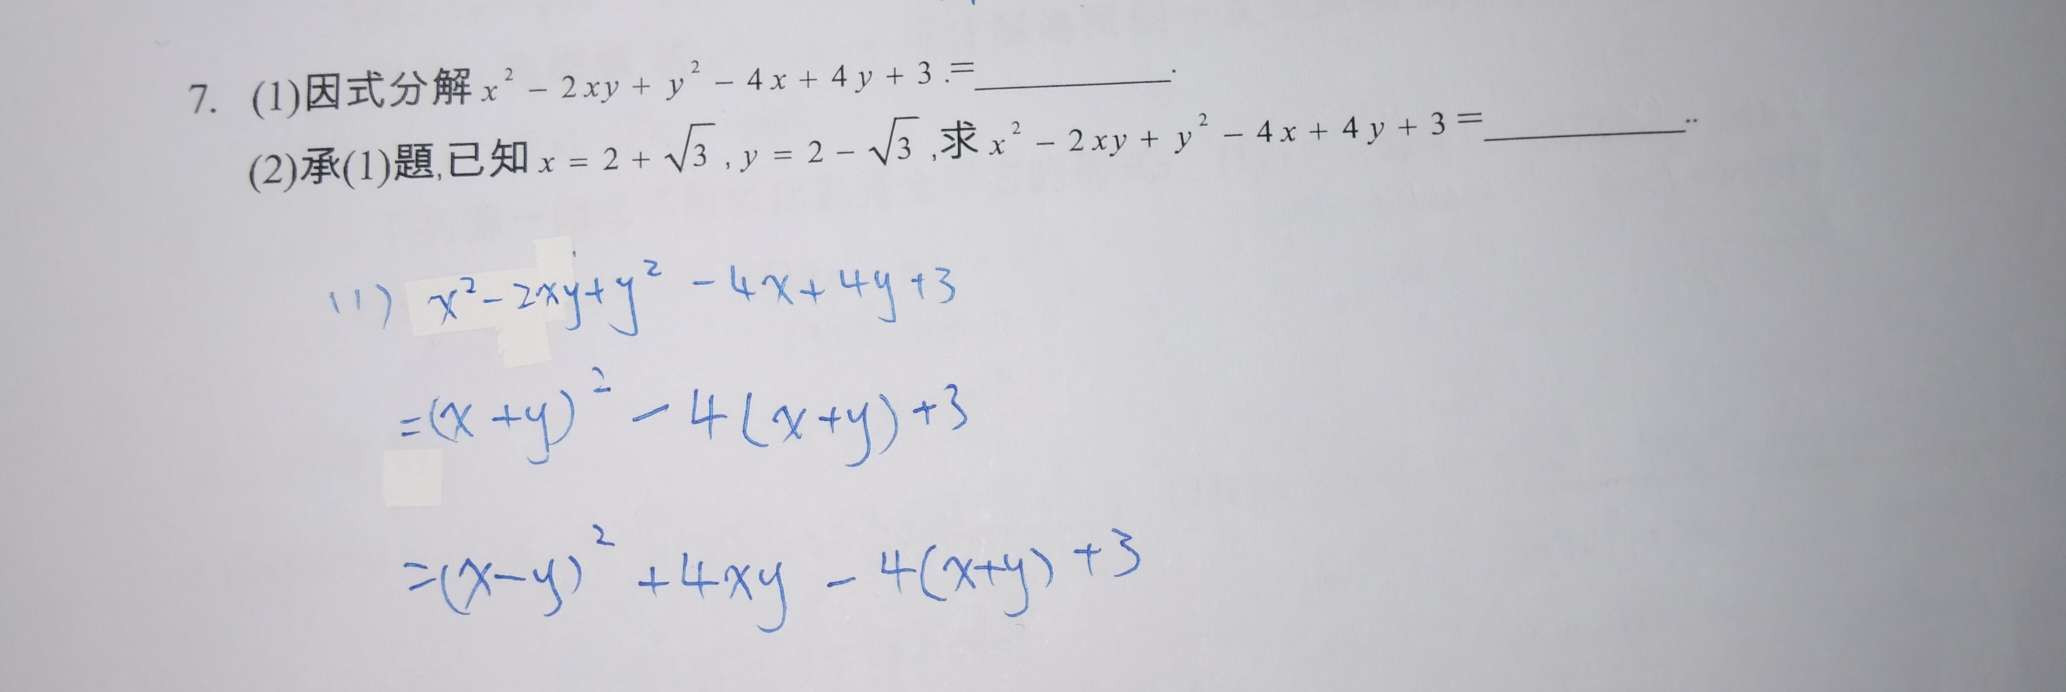 7. (1)因式分解 x² - 2xy + y² - 4x + 4y + 3 .= ________.
(2)承(1)題,已知 x = 2 + √3 , y = 2 - √3 ,求 x² - 2xy + y² - 4x + 4y + 3 = ________..
(1) x² - 2xy + y² - 4x + 4y + 3
= (x + y)² - 4(x + y) + 3
= (x - y)² + 4xy - 4(x + y) + 3